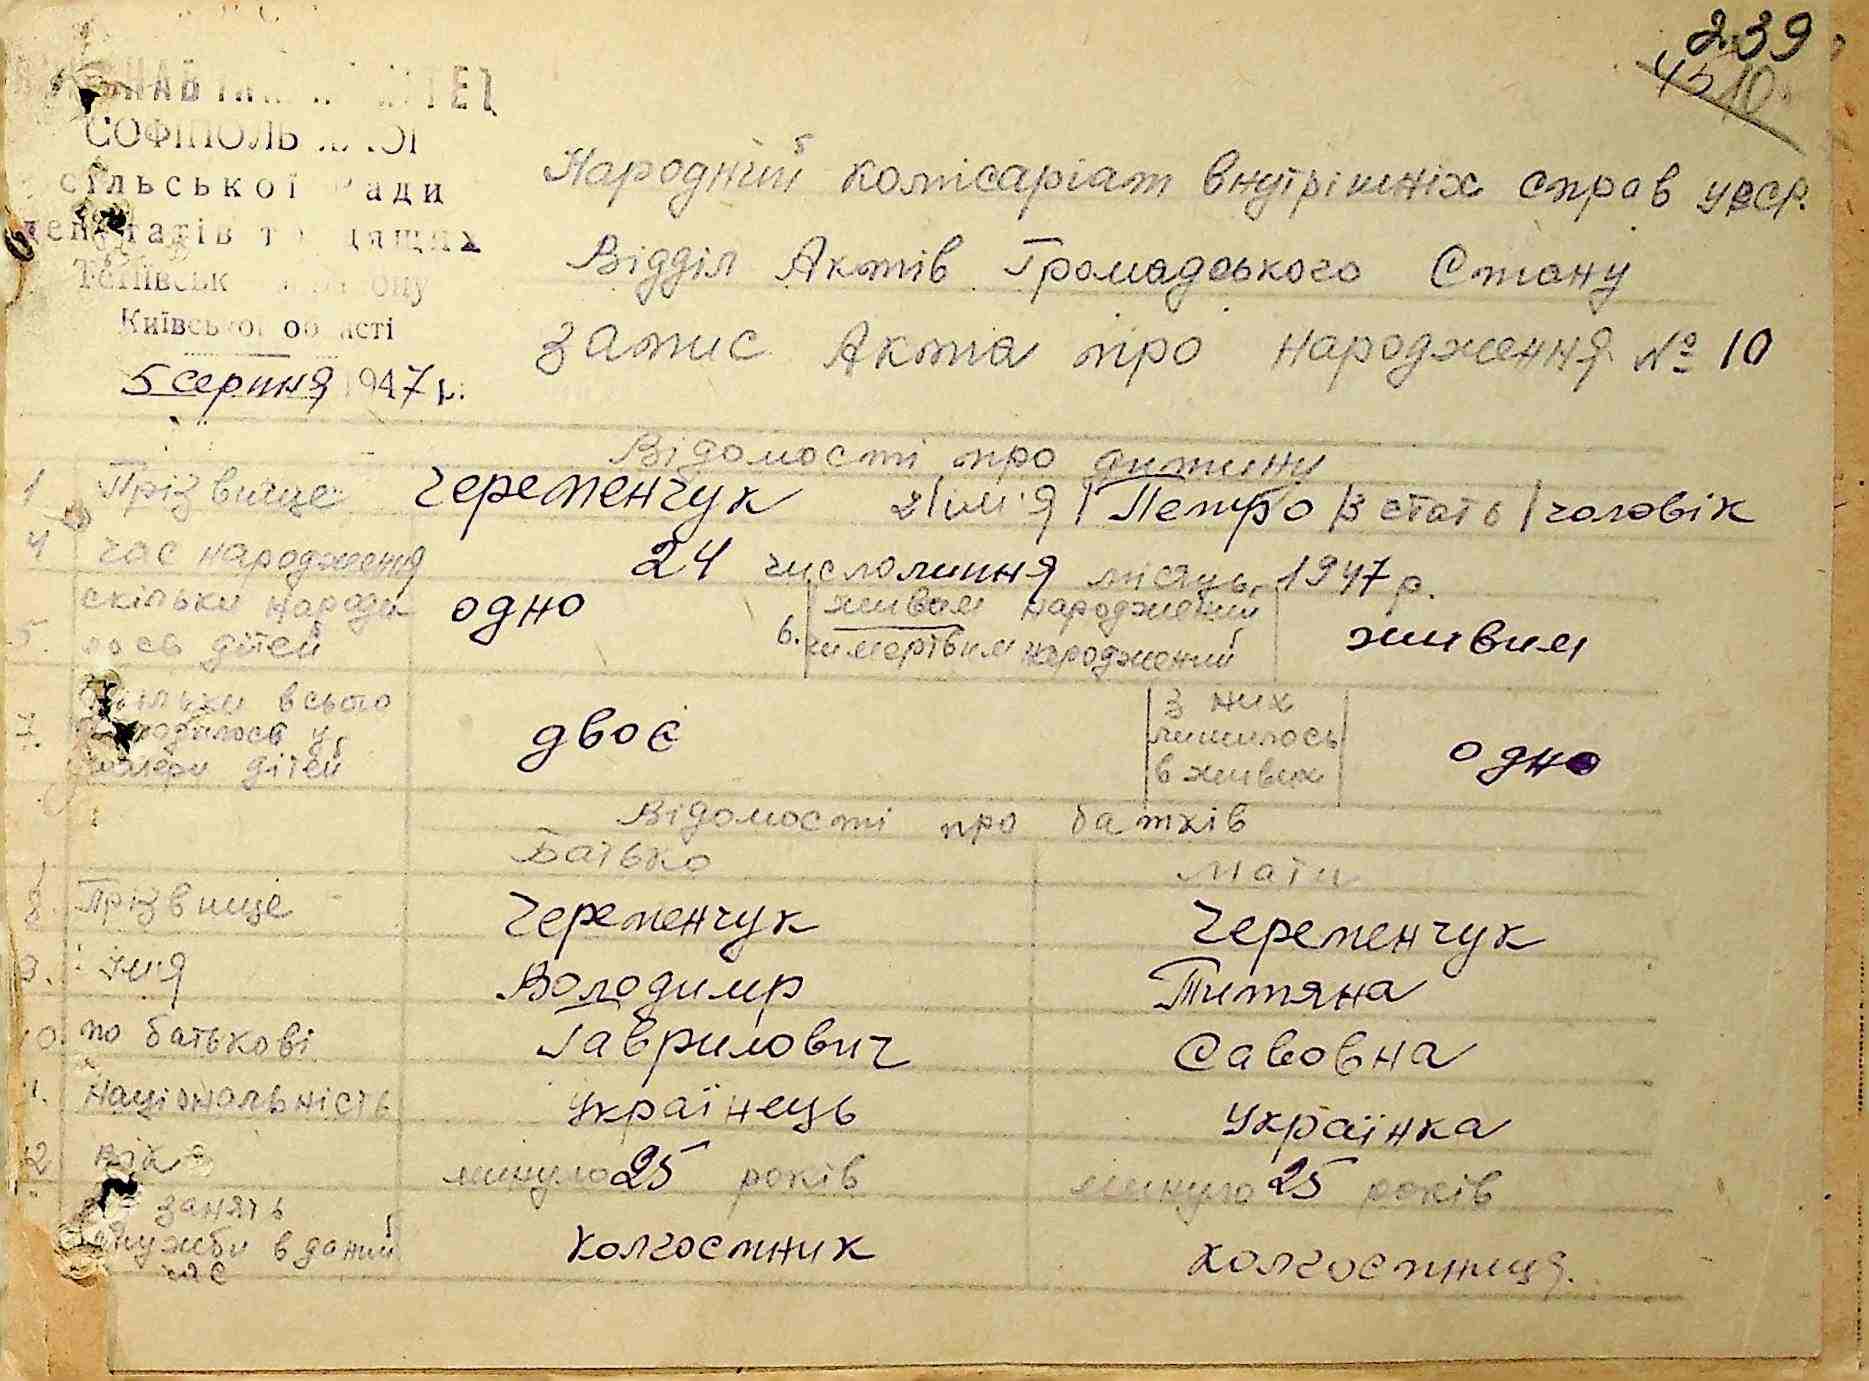 239
4310
СОФІПОЛЬ
сільської Ради
Київської області
5 серпня 1947 р.
Народній комісаріат внутрішніх справ УРСР.
Відділ Актів Громадського Стану
Запис Акта про народження № 10
Відомості про дитину
1 Прізвище Череменчук 2/ім'я/ Петро /3 стать/ чоловік
4 час народження 24 число липня місяць 1947 р.
5. скільки народилось дітей одно 6. живим народжений чи мертвим народжений живим
7. скільки всього народилось у матери дітей двоє з них лишилось в живих одно
Відомості про батків
Батько Мати
8. Прізвище Череменчук Череменчук
9. Ім'я Володимир Титяна
10. по батькові Гаврилович Савовна
11. Національність Українець Українка
12 вік минуло 25 років минуло 25 років
занять служби в даний час Колгоспник колгоспниця.